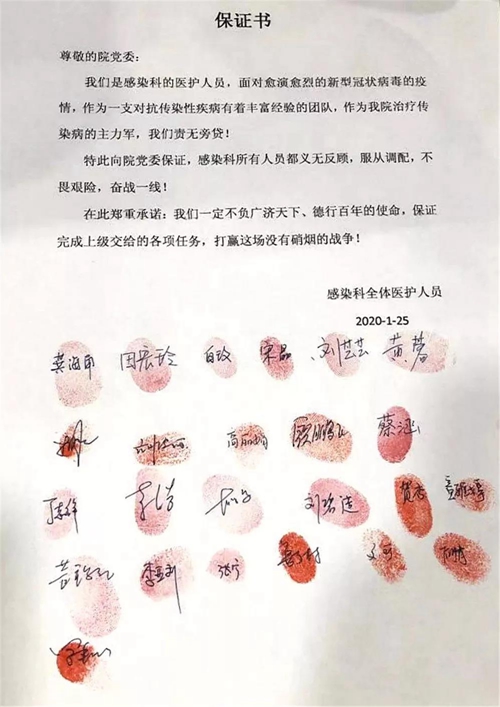 保证书
尊敬的院党委：
我们是感染科的医护人员，面对愈演愈烈的新型冠状病毒的疫
情，作为一支对抗传染性疾病有着丰富经验的团队，作为我院治疗传
染病的主力军，我们责无旁贷！
特此向院党委保证，感染科所有人员都义无反顾，服从调配，不
畏艰险，奋战一线！
在此郑重承诺：我们一定不负广济天下、德行百年的使命，保证
完成上级交给的各项任务，打赢这场没有硝烟的战争！
感染科全体医护人员
2020-1-25
龚海甬 田宏玲 白玫 宋晶 刘芸芸 黄蓉
蔡涵